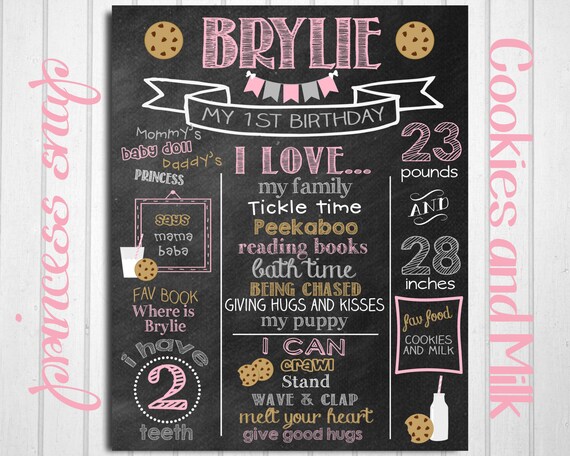 BRYLIE
MY 1ST BIRTHDAY
Mommy's
baby doll
Daddy's
PRINCESS
says
mama
baba
FAV BOOK
Where is
Brylie
i have
2
teeth
I LOVE...
my family
Tickle time
Peekaboo
reading books
bath time
BEING CHASED
GIVING HUGS AND KISSES
my puppy
I CAN
crawl
Stand
WAVE & CLAP
melt your heart
give good hugs
23
pounds
AND
28
inches
fav food
COOKIES
AND MILK
princess snap
Cookies and Milk